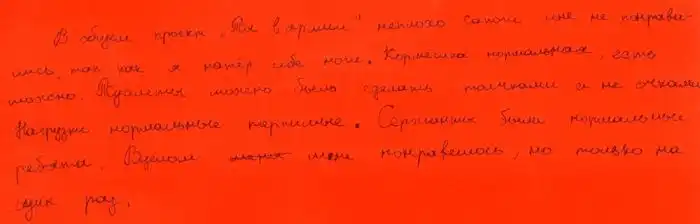 В общем проект „Ты в армии" неплохо сапоги мне не понрави-
лись, так как я натёр себе ноги. Кормешка нормальная, есть
можно. Туалеты можно было сделать толчками а не очками
Нагрузки нормальные терпимые. Сержанты были нормальные
ребята. Вцелом мне понравелось, но только на
один раз.